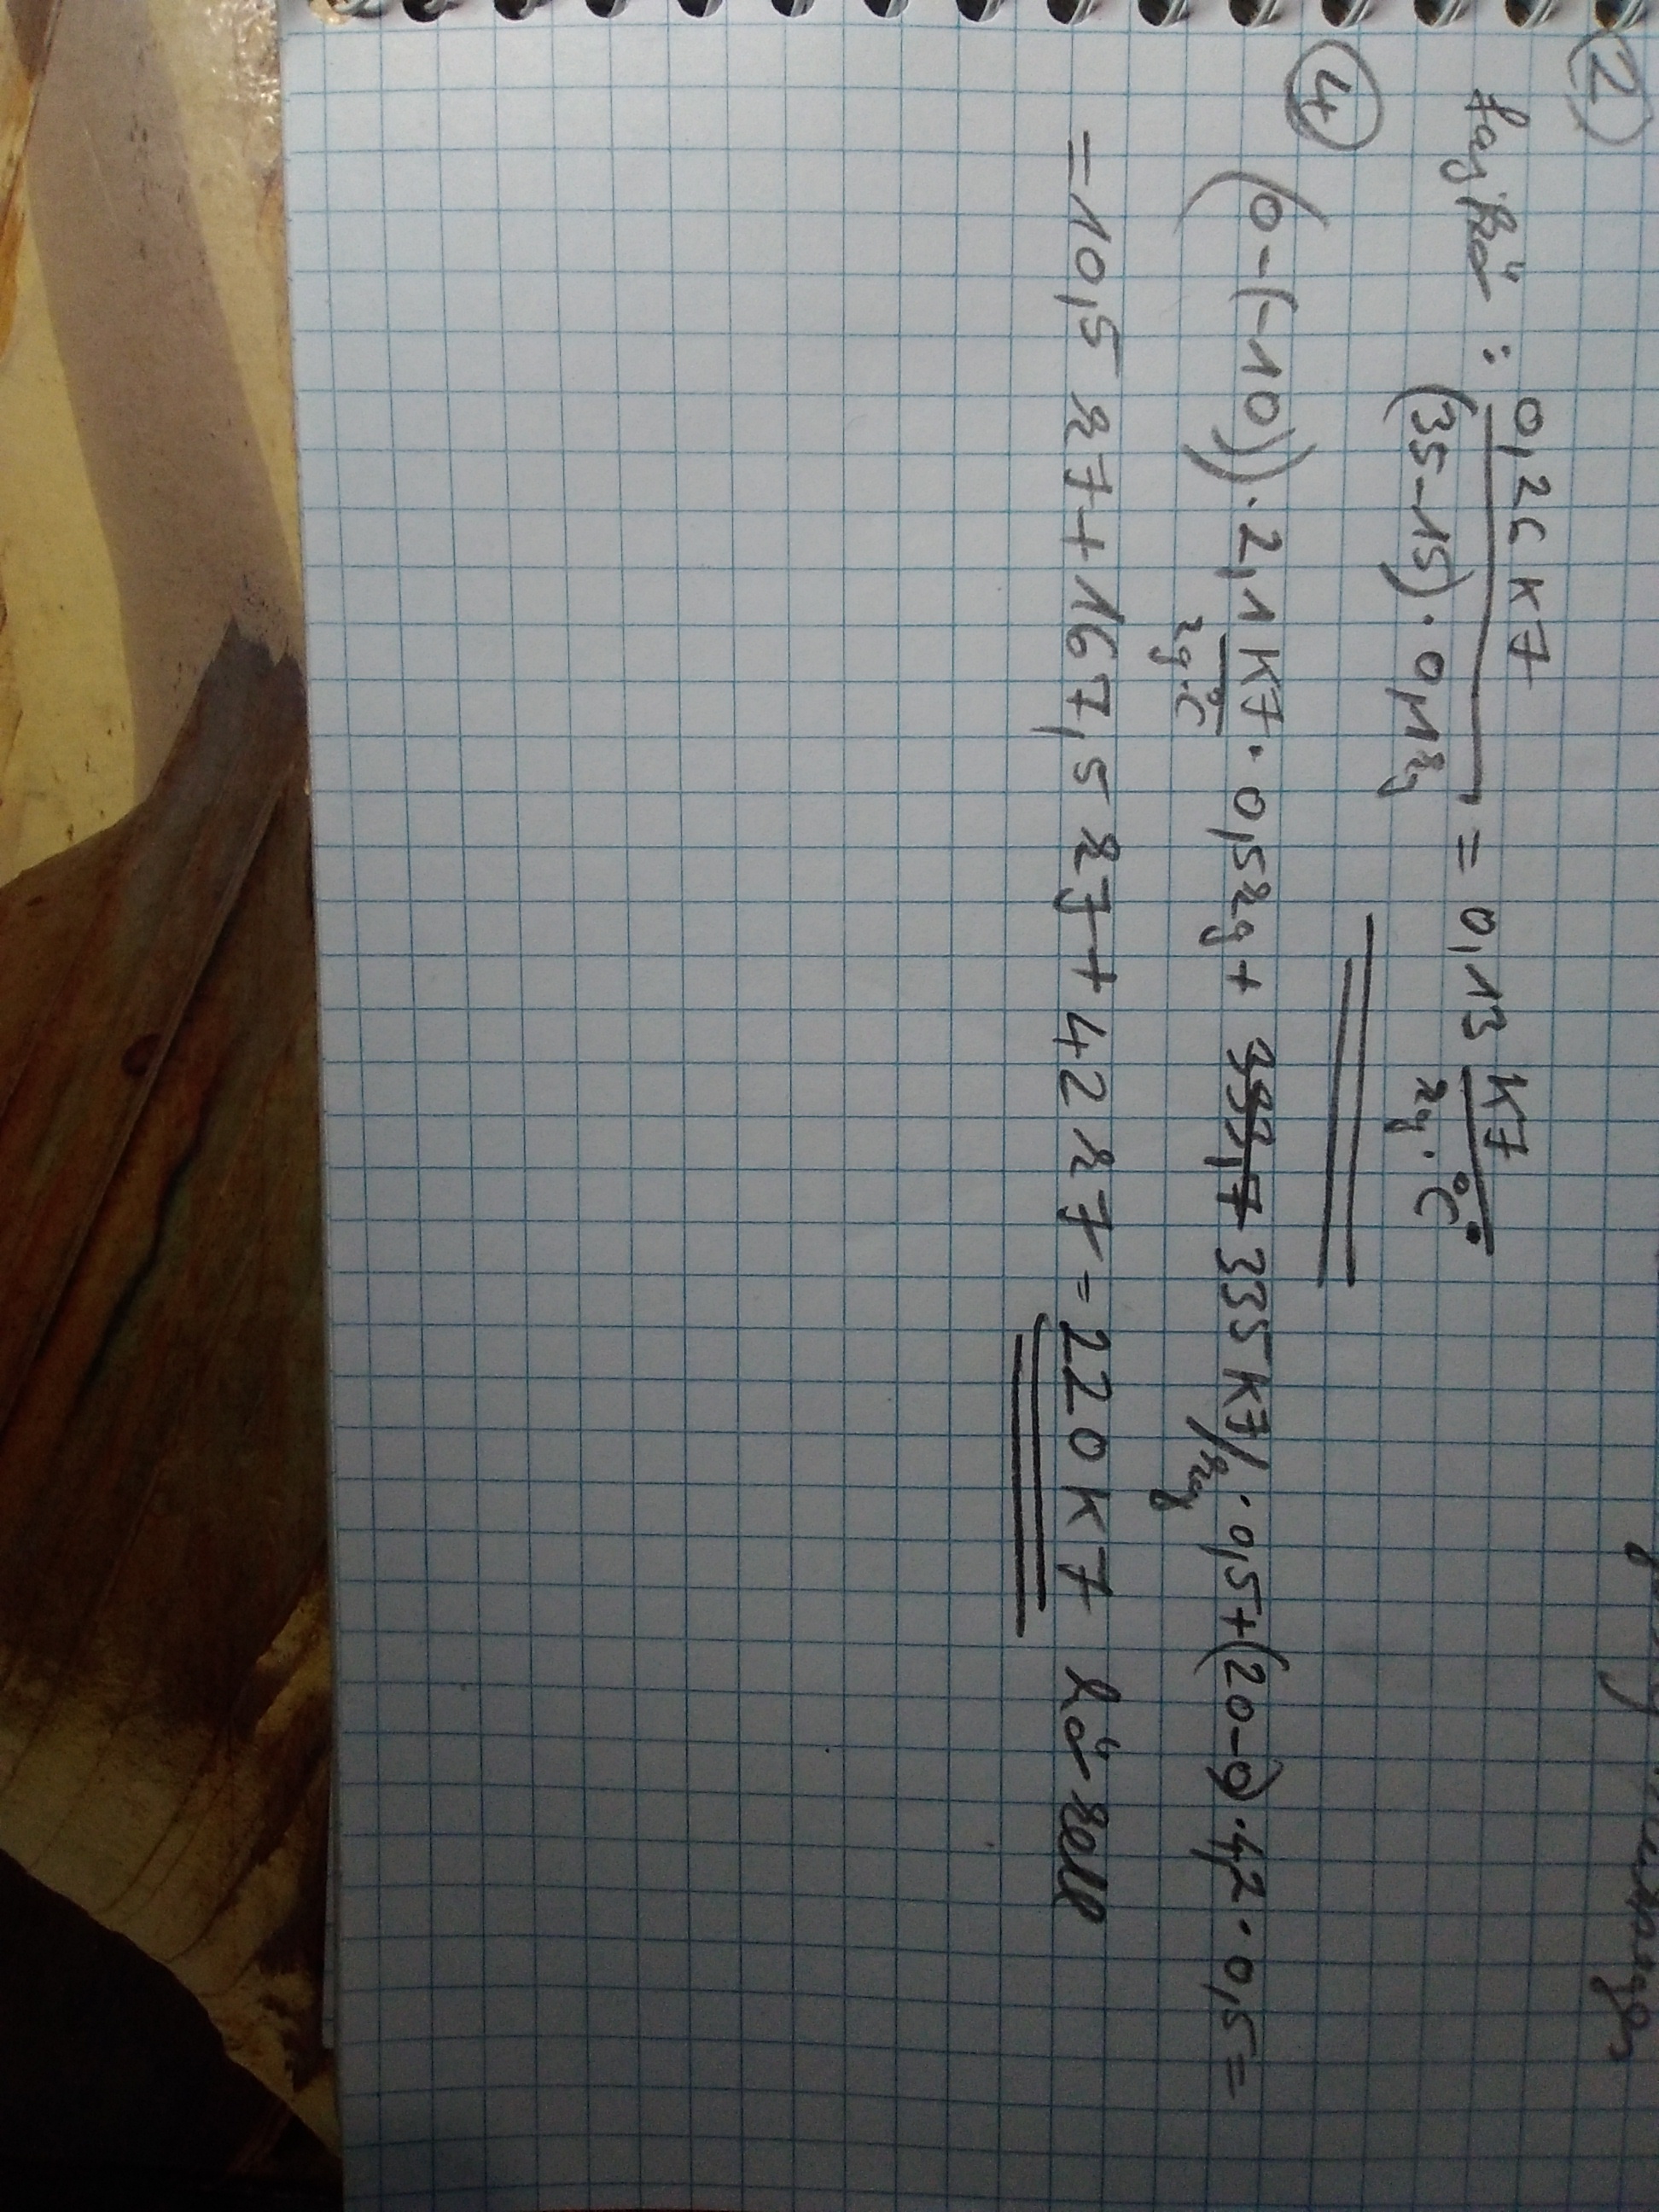 2
fajhő : 0,26 kJ / (35-15) · 0,1 kg = 0,13 kJ / kg · °C
4
(0-(-10)) · 2,1 kJ / kg · °C · 0,5 kg + 333,7 335 kJ/kg · 0,5 + (20-0) · 4,2 · 0,5 =
= 10,5 kJ + 167,5 kJ + 42 kJ = 220 kJ hő kell